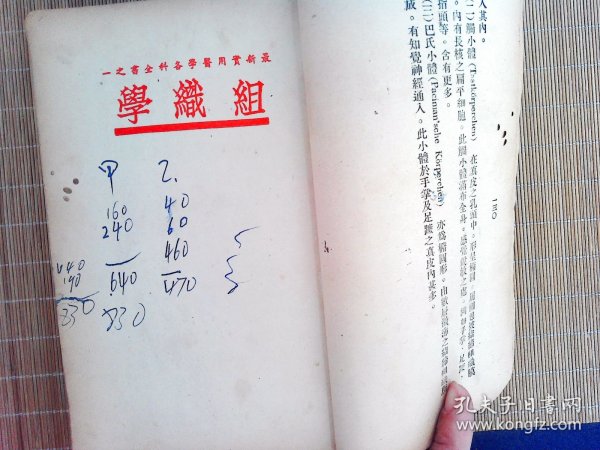 最新實用醫學各科全書之一
組織學
甲 乙
160 40
240 60
460
640 470
440
190
830 830
入其內。
(二)觸小體(Tastkörperchen) 在真皮之乳頭中。
內有長核之扁平細胞。此觸小體滿布全身。感覺
指頭等。含有更多。
(三)巴氏小體(Pacinian'sche Körperchen) 亦爲橢圓形。由
成。有知覺神經通入。此小體於手掌及足蹠之真皮內甚多。
孔夫子旧书网
www.kongfz.com